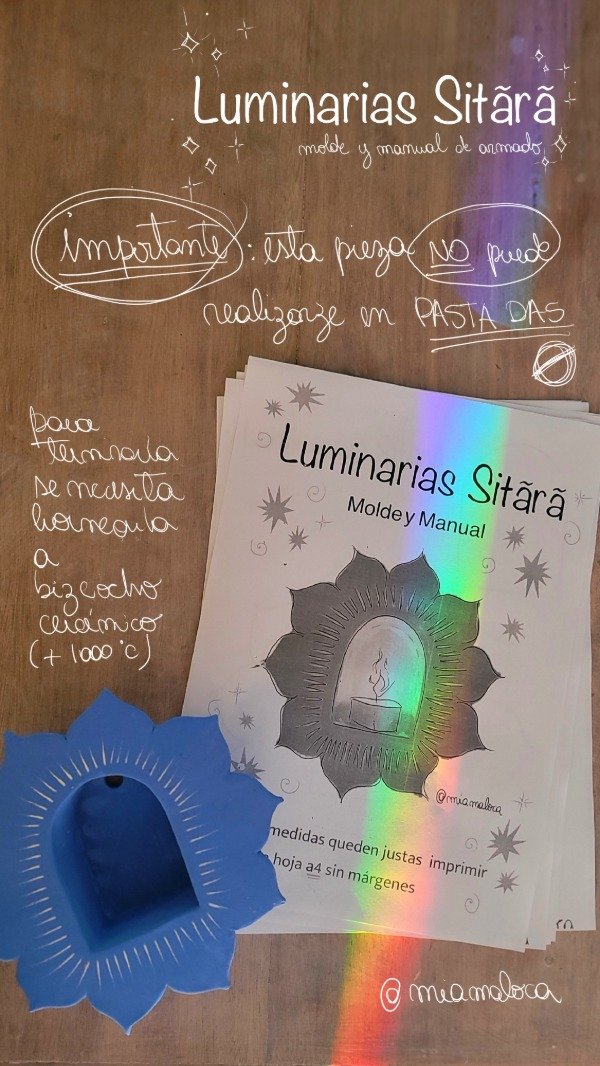 Luminarias Sitãrã
molde y manual de armado
importante: esta pieza NO puede
realizarze en PASTA DAS
para
terminarla
se necesita
hornearla
a
bizcocho
cerámico
(+ 1000°c)
Luminarias Sitãrã
Molde y Manual
@miamaloca
medidas queden justas imprimir
hoja a4 sin márgenes
@miamaloca